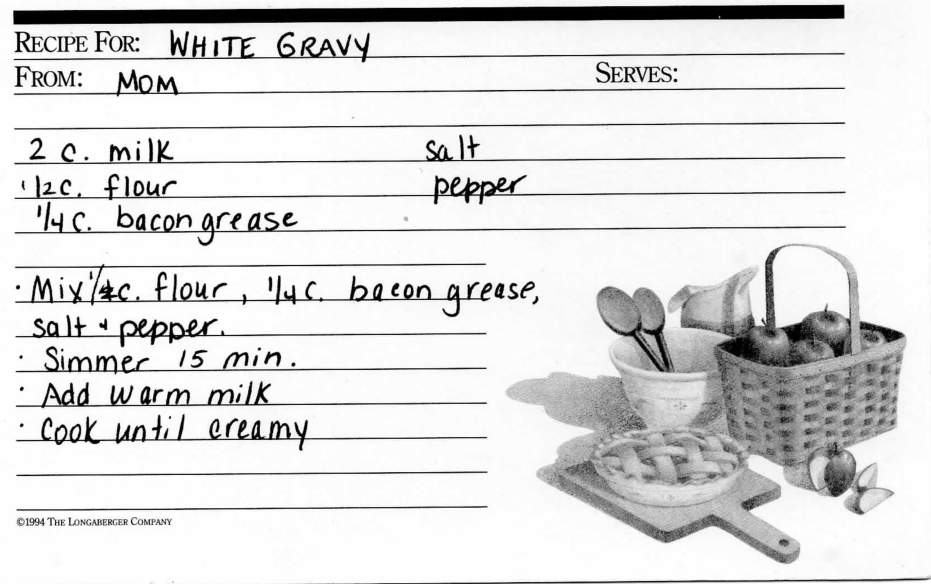 RECIPE FOR: WHITE GRAVY
FROM: MOM SERVES:
2 c. milk salt
1/2 c. flour pepper
1/4 c. bacon grease
· Mix 1/2 c. flour, 1/4 c. bacon grease,
salt + pepper.
· Simmer 15 min.
· Add warm milk
· Cook until creamy
©1994 THE LONGABERGER COMPANY